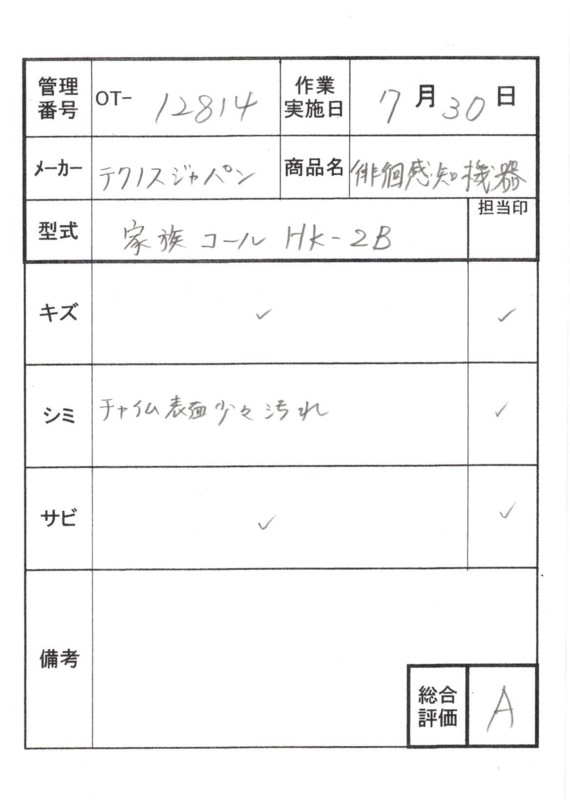 管理番号 OT- 12814 作業実施日 7月30日
メーカー テクノスジャパン 商品名 徘徊感知機器
型式 家族コール HK-2B 担当印
キズ ✓ ✓
シミ チャイム表面少々汚れ ✓
サビ ✓ ✓
備考
総合評価 A